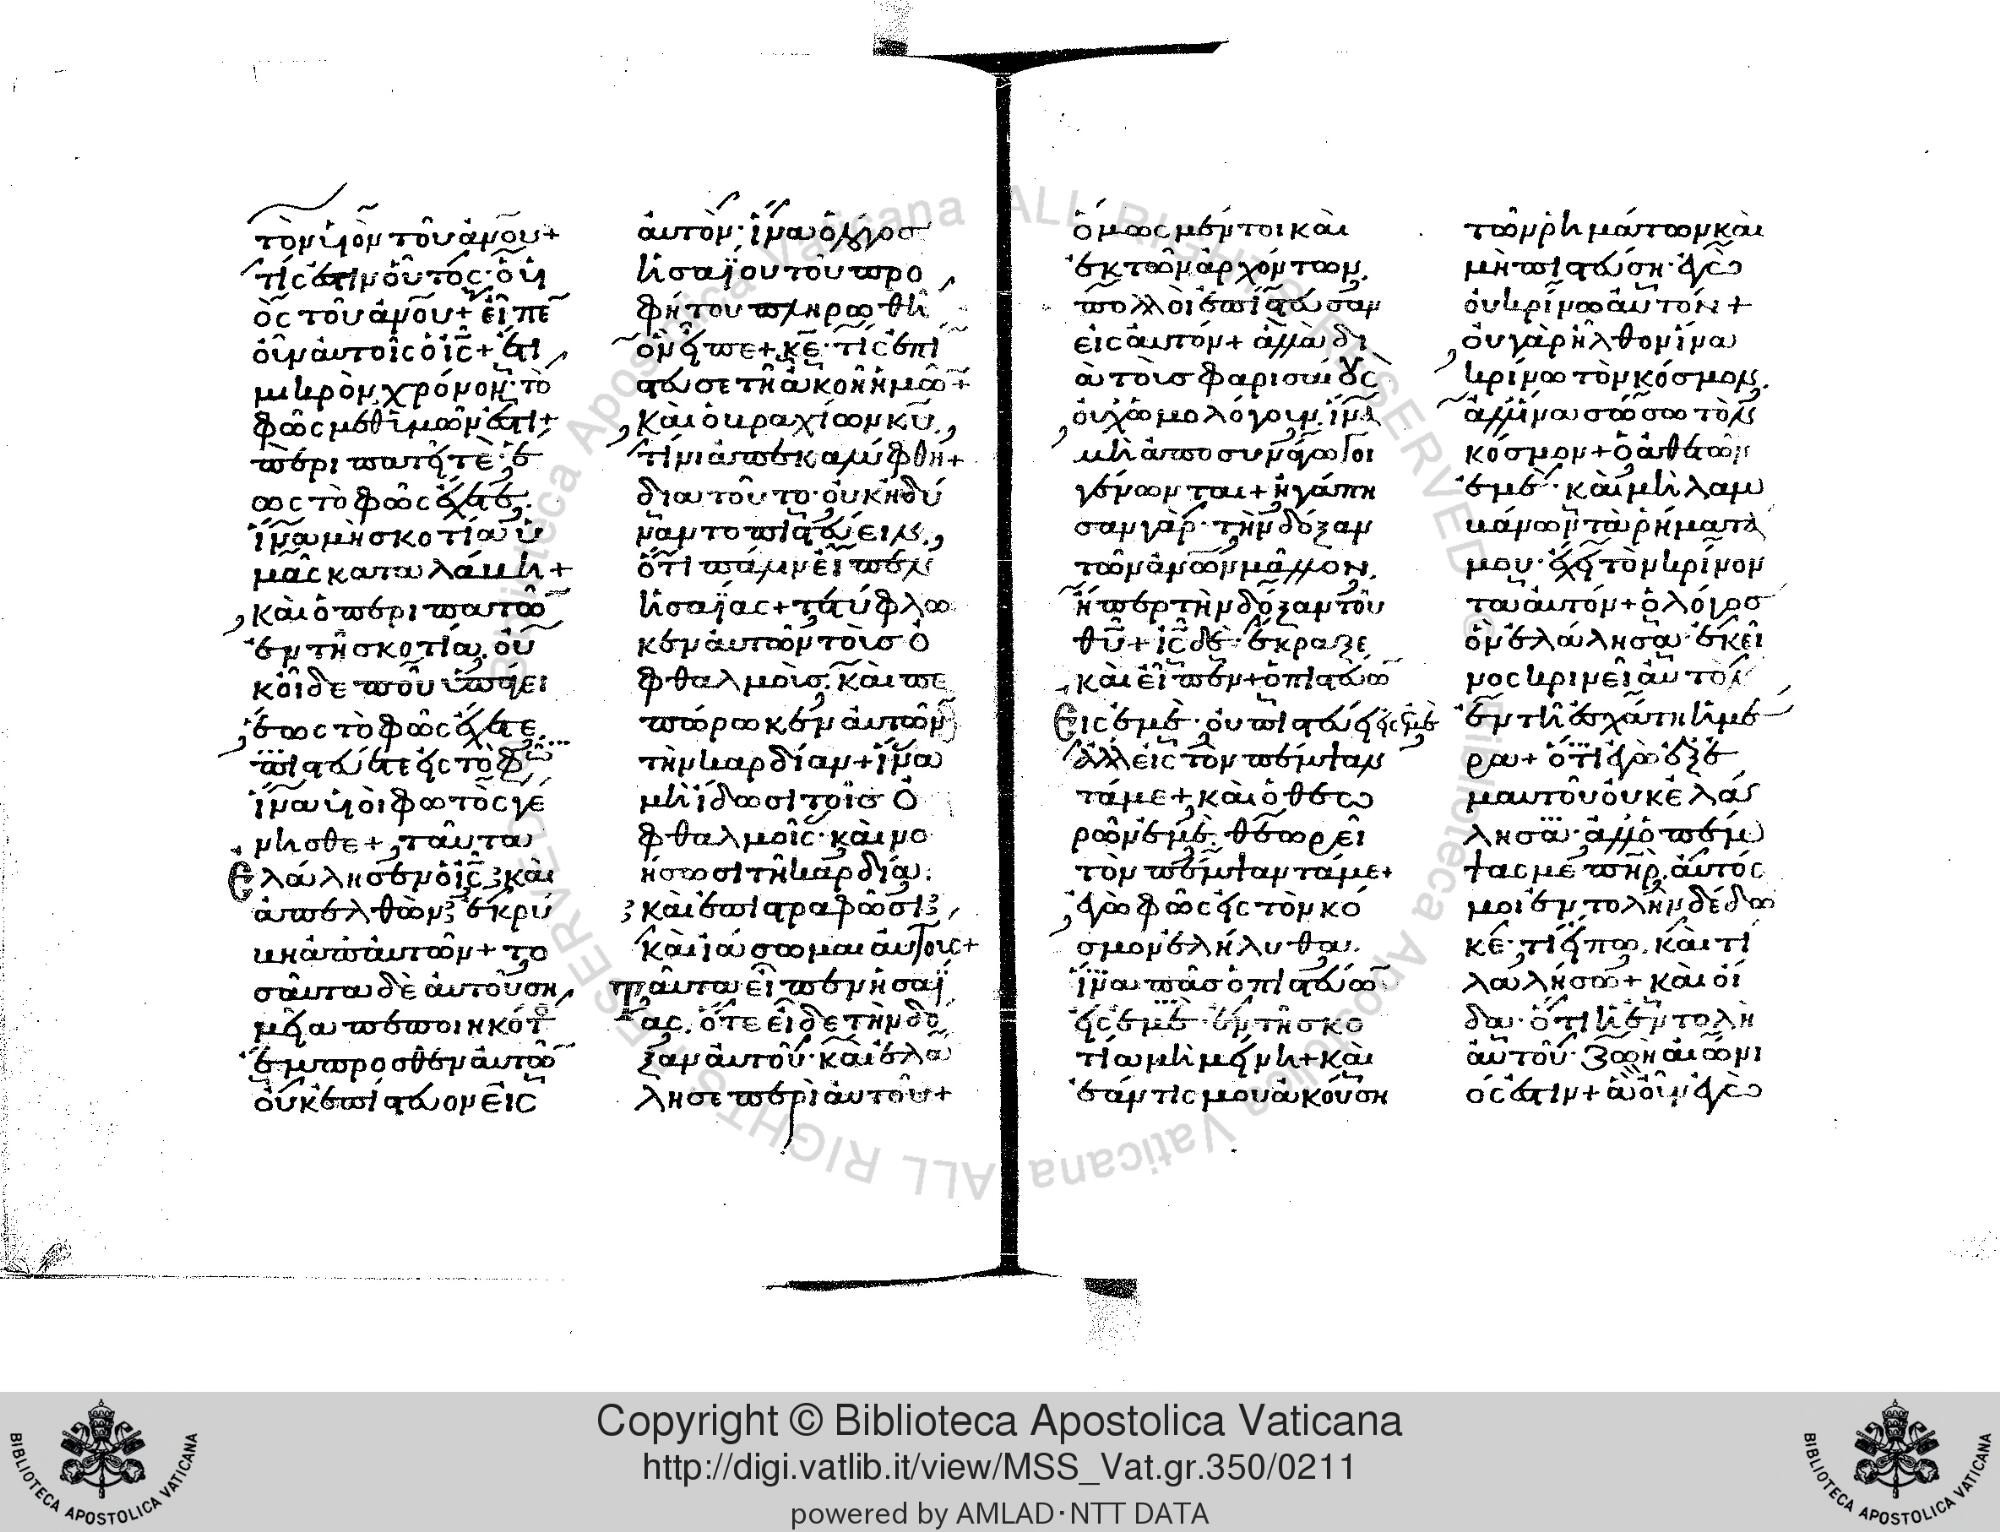 τὸν υἱὸν τοῦ ἀνου+
τίς ἐστιν οὗτος· ὁ υἱ
ὸς τοῦ ἀνου+ εἶπε
οὖν αὐτοῖς ὁ ις+ ἔτι
μικρὸν χρόνον· τὸ
φῶς μεθ ἡμῶν ἐστι+
περιπατῆτε· ἕ
ως τὸ φῶς ἔχετε.
ἵνα μὴ σκοτία ὑ
μᾶς καταλάμη+
καὶ ὁ περιπατῶ
ἐν τῆ σκοτία. οὐ
κ οἶδε ποῦ ὑπάγει
ἕως τὸ φῶς ἔχετε.
πιστεύετε εἰς τὸ φῶ
ἵνα υἱοὶ φωτὸς γέ
νησθε+ ταῦτα
ἐλάλησεν ὁ ις καὶ
ἀπελθὼν ἐκρύ
βη ἀπ αὐτῶν+ το
σαῦτα δὲ αὐτοῦ ση
μεῖα πεποιηκότ
ἔμπροσθεν αὐτῶ
οὐκ ἐπίστευον εἰς
αὐτὸν· ἵνα ὁ λόγος
ἡσαΐου τοῦ προ
φήτου πληρωθῆ
ὃν εἶπε+ κε· τίς ἐπί
στευσε τῆ ἀκοῆ ἡμῶ+
καὶ ὁ βραχίων κυ.
τίνι ἀπεκαλύφθη+
διατοῦτο· οὐκ ἠδύ
ναντο πιστεύειν.
ὅτι πάλιν εἶπεν
ἡσαΐας+ τετύφλω
κεν αὐτῶν τοὺς ὀ
φθαλμοὺς. καὶ πε
πώρωκεν αὐτῶν
τὴν καρδίαν+ ἵνα
μὴ ἴδωσι τοῖς ὀ
φθαλμοῖς· καὶ νο
ήσωσι τῆ καρδία.
καὶ ἐπιστραφῶσι
καὶ ἰάσωμαι αὐτοις+
ταῦτα εἶπεν ἡσαΐ
ας. ὅτε εἶδε τὴν δό
ξαν αὐτοῦ· καὶ ἐλά
λησε περὶ αὐτοῦ+
ὅμως μέντοι καὶ
ἐκ τῶν ἀρχόντων.
πολλοὶ ἐπίστευσαν
εἰς αὐτόν+ ἀλλὰ δι
ὰ τοὺς φαρισαίους
οὐχ ὡμολόγουν. ἵνα
μὴ ἀποσυνάγωγοι
γένωνται+ ἠγάπη
σαν γὰρ· τὴν δόξαν
τῶν ἀνων μᾶλλον.
ἤπερ τὴν δόξαν τοῦ
θυ+ ις δὲ· ἔκραξε
καὶ εἶπεν+ ὁ πιστεύω
εἰς ἐμὲ· οὐ πιστεύει εἰς ἐμὲ
ἀλλ εἰς τὸν πέμψαν
τά με+ καὶ ὁ θεω
ρῶν ἐμὲ· θεωρεῖ
τὸν πέμψαντά με+
ἐγὼ φῶς εἰς τὸν κό
σμον ἐλήλυθα.
ἵνα πᾶς ὁ πιστεύω
εἰς ἐμὲ· ἐν τῆ σκο
τία μὴ μείνη+ καὶ
ἐάν τις μου ἀκούση
τῶν ῥημάτων καὶ
μὴ πιστεύση· ἐγὼ
οὐ κρίνω αὐτόν+
οὐ γὰρ ἦλθον ἵνα
κρίνω τὸν κόσμον.
ἀλλ ἵνα σώσω τὸν
κόσμον+ ὁ ἀθετῶν
ἐμὲ· καὶ μὴ λαμ
βάνων τὰ ῥήματά
μου· ἔχει τὸν κρίνον
τα αὐτόν+ ὁ λόγος
ὃν ἐλάλησα· ἐκεῖ
νος κρινεῖ αὐτὸν
ἐν τῆ ἐσχάτη ἡμέ
ρα+ ὅτι ἐγὼ ἐξ ἐ
μαυτοῦ οὐκ ἐλά
λησα· ἀλλ ὁ πέμ
ψας με πηρ. αὐτός
μοι ἐντολὴν δέδω
κέ· τί εἴπω. καὶ τί
λαλήσω+ καὶ οἶ
δα· ὅτι ἡ ἐντολὴ
αὐτοῦ· ζωὴ αἰώνι
ός ἐστιν+ ἃ οὖν ἐγὼ
Copyright © Biblioteca Apostolica Vaticana
http://digi.vatlib.it/view/MSS_Vat.gr.350/0211
powered by AMLAD·NTT DATA
BIBLIOTECA APOSTOLICA VATICANA
BIBLIOTECA APOSTOLICA VATICANA